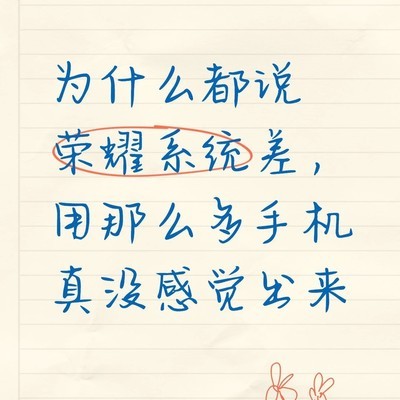 为什么都说
荣耀系统差，
用那么多手机
真没感觉出来